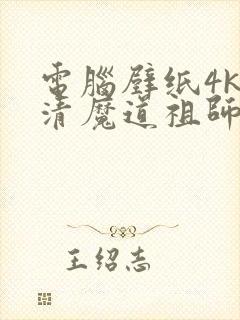 電腦壁纸4K
清魔道祖師
王绍志